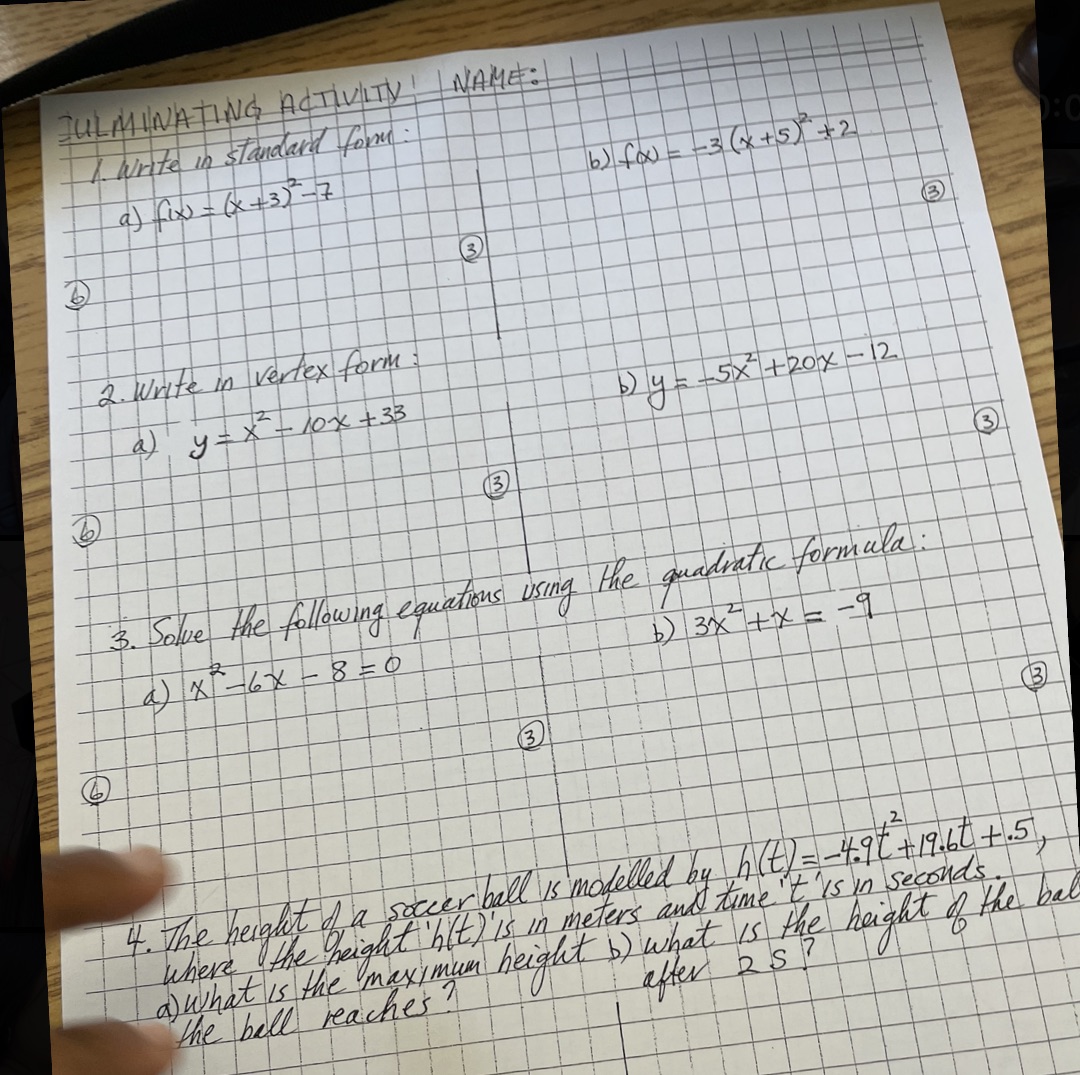 CULMINATING ACTIVITY NAME:
1. Write in standard form:
a) f(x) = (x+3)² - 7
b) f(x) = -3(x+5)² + 2
③
③
⑥
2. Write in vertex form:
a) y = x² - 10x + 33
b) y = -5x² + 20x - 12
③
③
⑥
3. Solve the following equations using the quadratic formula:
a) x² - 6x - 8 = 0
b) 3x² + x = -9
③
③
⑥
4. The height of a soccer ball is modelled by h(t) = -4.9t² + 19.6t + .5,
where the height 'h(t)' is in meters and time 't' is in seconds.
a) What is the maximum height
the ball reaches?
b) what is the height of the ball
after 2 s?